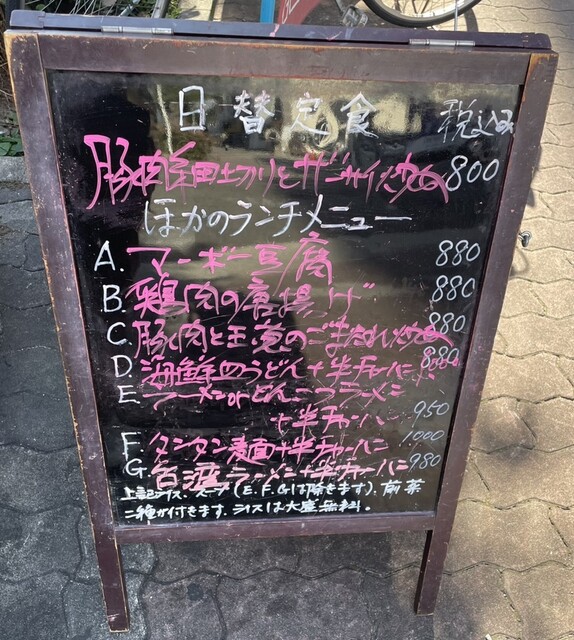 日替定食 税込み
豚肉細切りとザーサイ炒め 800
ほかのランチメニュー
A. マーボー豆腐 880
B. 鶏肉の唐揚げ 880
C. 豚肉と玉葱のごまだれ炒め 880
D. 海鮮皿うどん+半チャーハン 880
E. ラーメンorとんこつラーメン
+半チャーハン 950
F. タンタン麺+半チャーハン 1000
G. 台湾ラーメン+半チャーハン 980
上記ライス、スープ(E.F.Gは除きます)、前菜
二種が付きます。ライスは大盛無料。